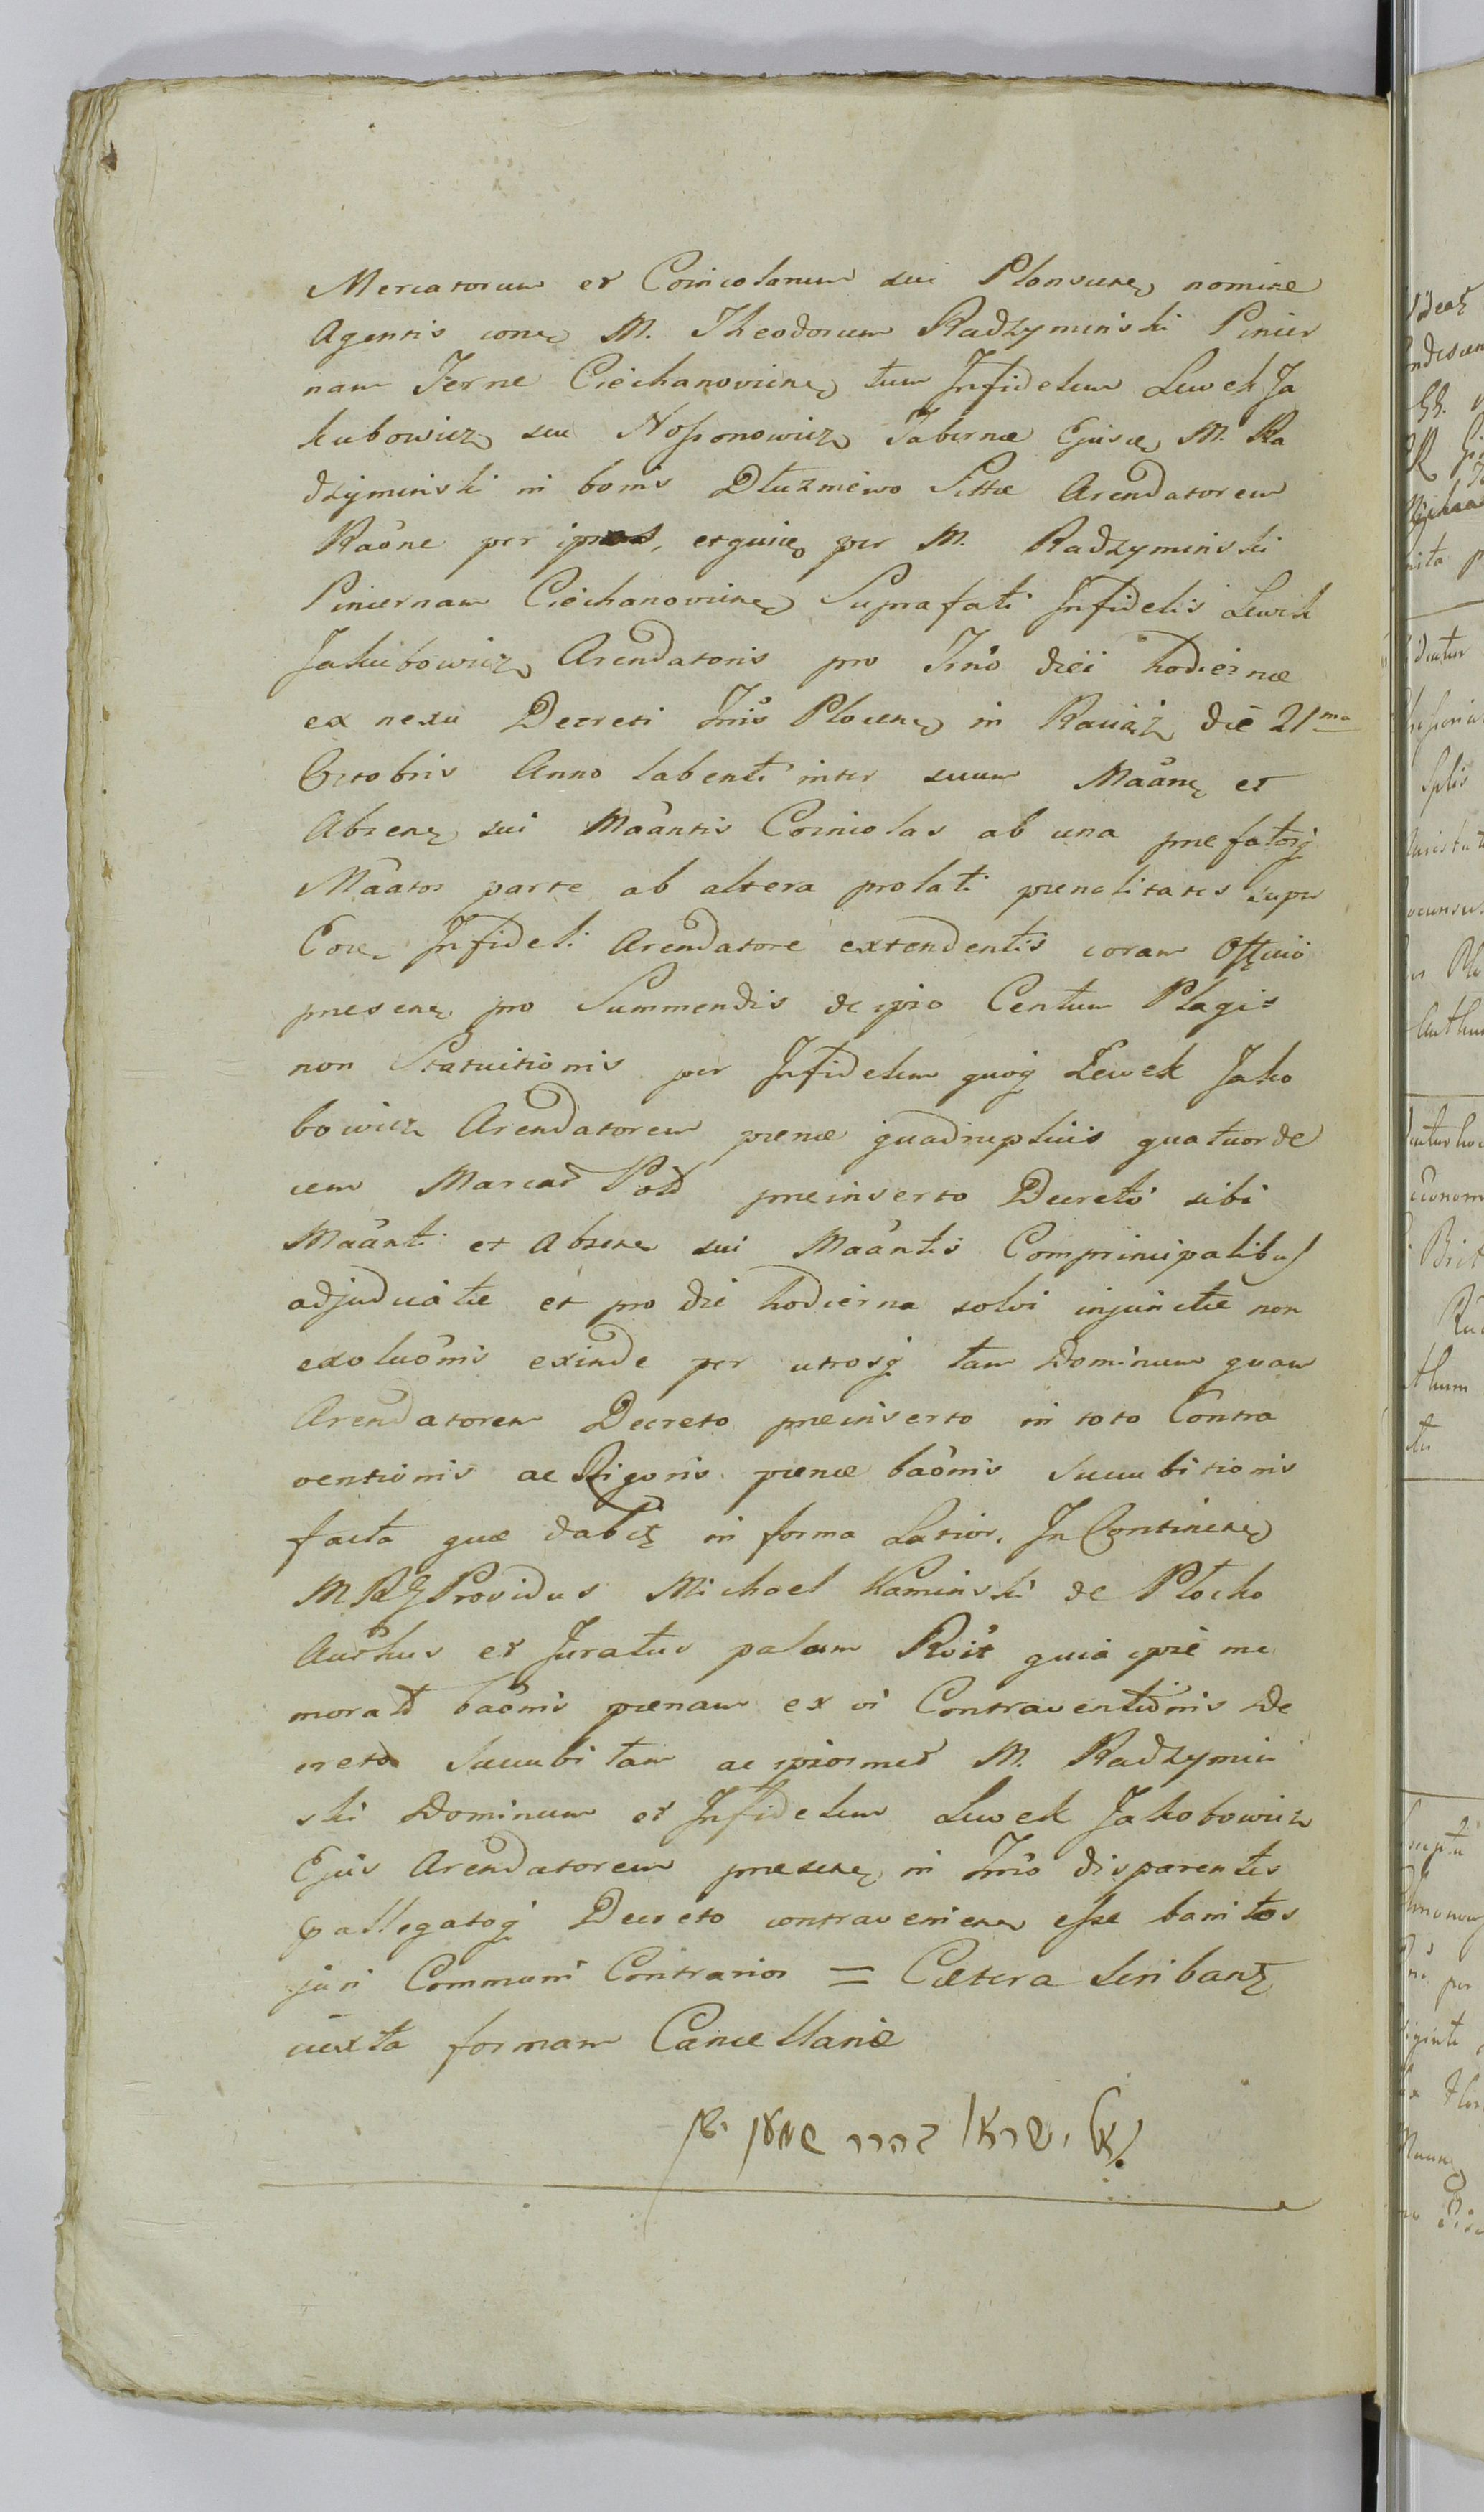 Mercatorum et Coincolarum sui Plonscens nomine
Agentis contra M. Theodorum Radzyminski Pincer
nam Terrae Ciechanoviens tum Infidelem Lewek Ja
kubowicz seu Nossonowicz Tabernae Ejusd M. Ra
dzyminski in bonis Dłuzniewo Sittae Arendatorem
Raône per ipsos, et quidem per M. Radzyminski
Pincernam Ciechanoviens Suprafati Infidelis Lewek
Jakubowicz Arendatoris pro Trno diei hodiernae
ex nexu Decreti Judis Plocens in Raciąż die 21ma
Octobris Anno labenti inter suum Maâns et
Absens sui Maântis Coincolas ab una praefatosq
Maâtos parte ab altera prolati paenalitatis super
Eod Infideli Arendatore extendentis coram Officio
praesens pro Summendis de ipso Centum Plagis
non Statuitionis per Infidelem quoq Lewek Jako
bowicz Arendatorem paenae quadruplicis quatuorde
cem Marcar Pold praeinserto Decreto sibi
Maânti et Absens sui Maântis Comprincipalibus
adjudicatae et pro die hodierna solvi injunctae non
exoluônis exinde per utrosq tam Dominum quam
Arendatorem Decreto praeinserto in toto Contra
ventionis ac Rigoris paenae baônis Succubitionis
facta quae dabitur in forma Latior. In Continens
MRG Providus Michael Kaminski de Płocko
Authus et Juratus palam Rôit quia ipse me
morat baônis paenam ex vi Contraventionis De
creto Succubitam ac ipsosmet M. Radzymin
ski Dominum et Infidelem Lewek Jakobowicz
Ejus Arendatorem praesens in Trno disparentes
pallegatoq Decreto contravenien esse banitos
juri Communi Contrarios = Caetera Scribantur
iuxta formam Cancellariae
ישראל בהרר שמעון